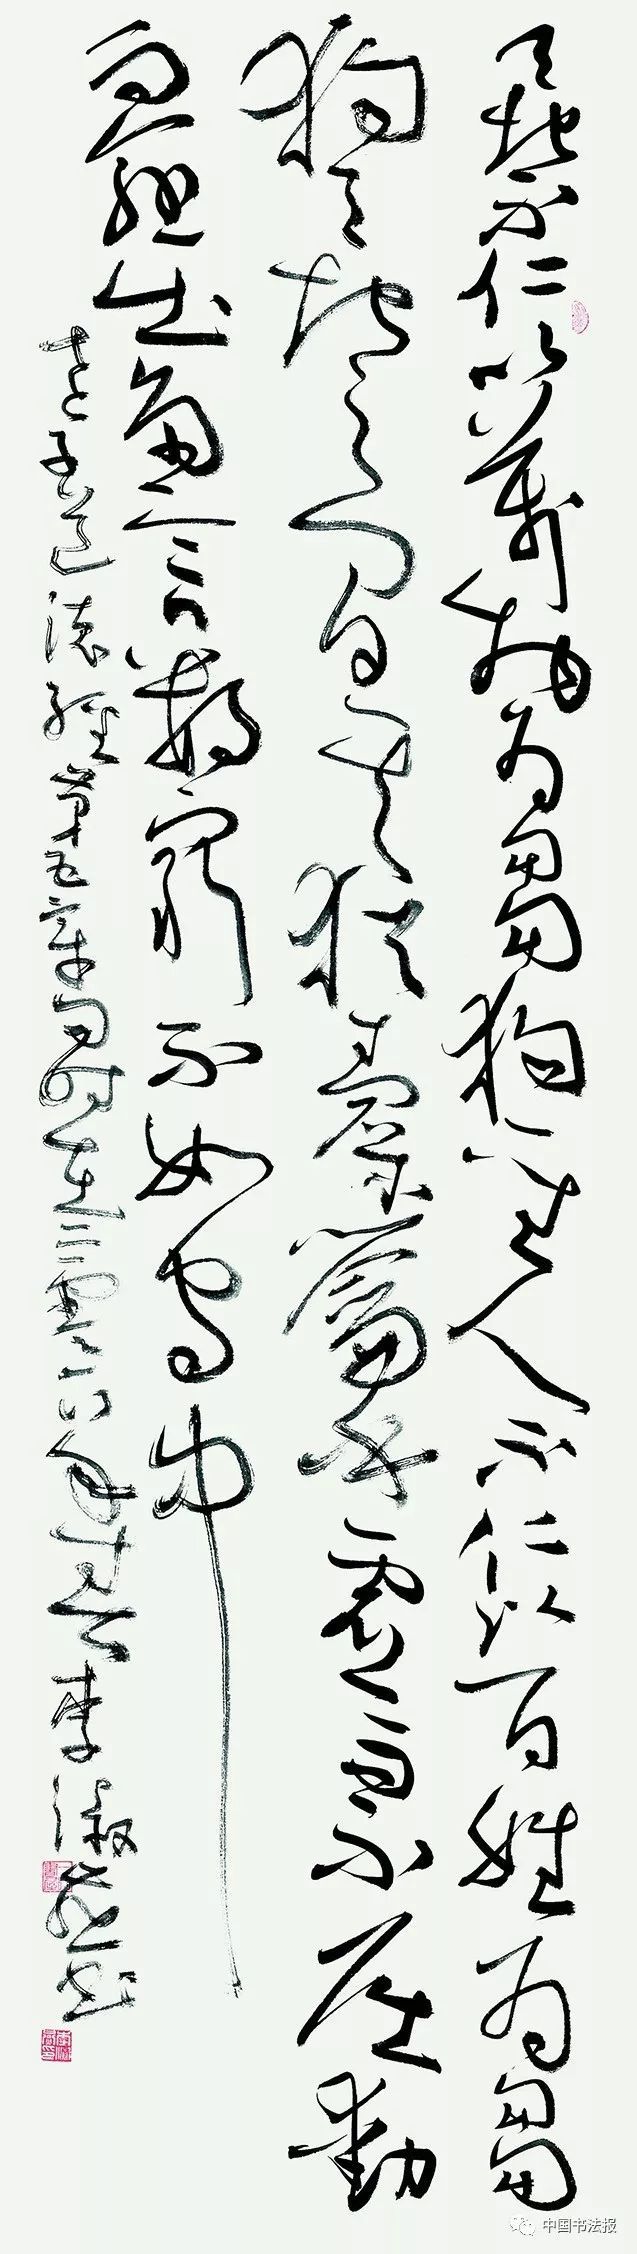 天地不仁以萬物為芻狗聖人不仁以百姓為芻
狗天地之間其猶橐籥乎虛而不屈動
而愈出多言數窮不如守中
老子道德經第五章句時在二零一六年春李淑書
中国书法报